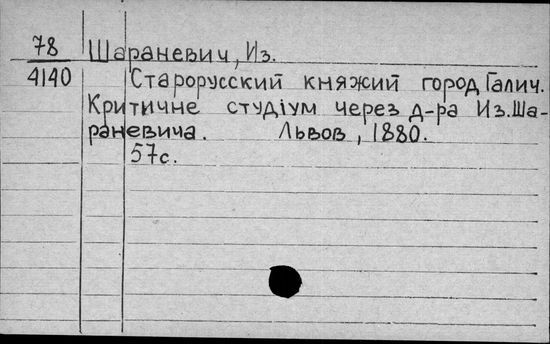 78 Шараневич, Из.
4140 Старорусский княжий город Галич.
Критичне студіум через д-ра Из. Ша-
раневича. Львов, 1880.
57с.